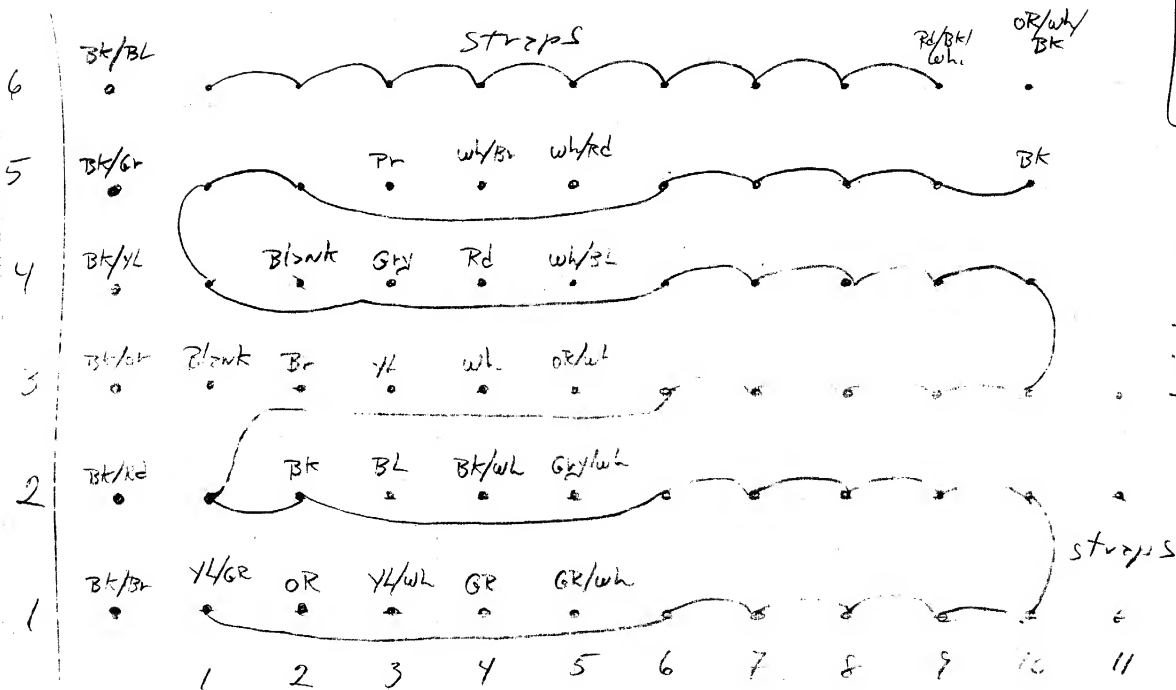 Straps
6 Bk/BL Rd/Bk/Wh. OR/Wh/BK
5 Bk/Gr Pr Wh/Br Wh/Rd BK
4 Bk/YL Blank Gry Rd Wh/BL
3 Bk/Or Blank Br YL Wh. OR/Wh
2 Bk/Rd BK BL Bk/Wh Gry/Wh
straps
1 Bk/Br YL/GR OR YL/Wh GR GR/Wh
1 2 3 4 5 6 7 8 9 10 11